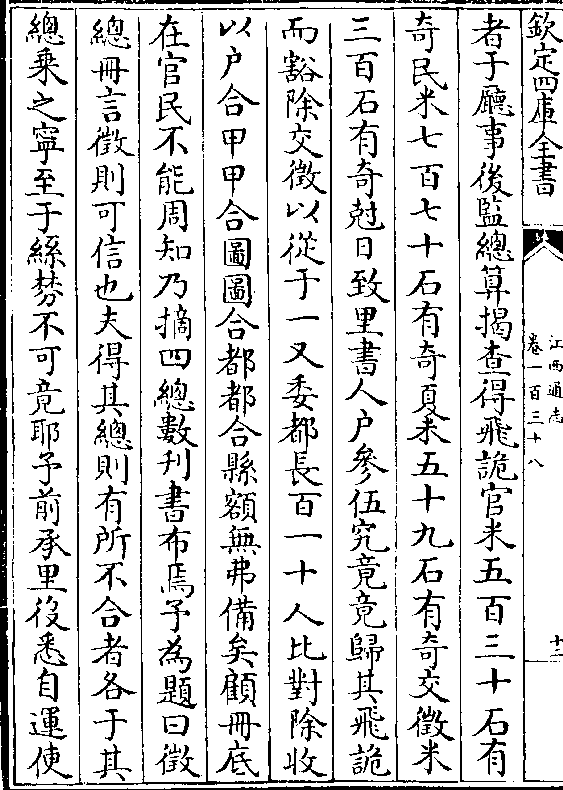 欽定四庫全書
江西通志
卷一百三十八
十二
者于廳事後監總算揭查得飛詭官米五百三十石有
奇民米七百七十石有奇夏米五十九石有奇交徵米
三百石有奇尅日致里書人户參伍究竟竟歸其飛詭
而豁除交徵以從于一又委都長百一十人比對除收
以户合甲甲合圖圖合都都合縣額無弗備矣顧冊底
在官民不能周知乃摘四總數刋書布焉予為題曰徵
總冊言徵則可信也夫得其總則有所不合者各于其
總乘之寧至于絲棼不可竟耶予前承里役悉自運使